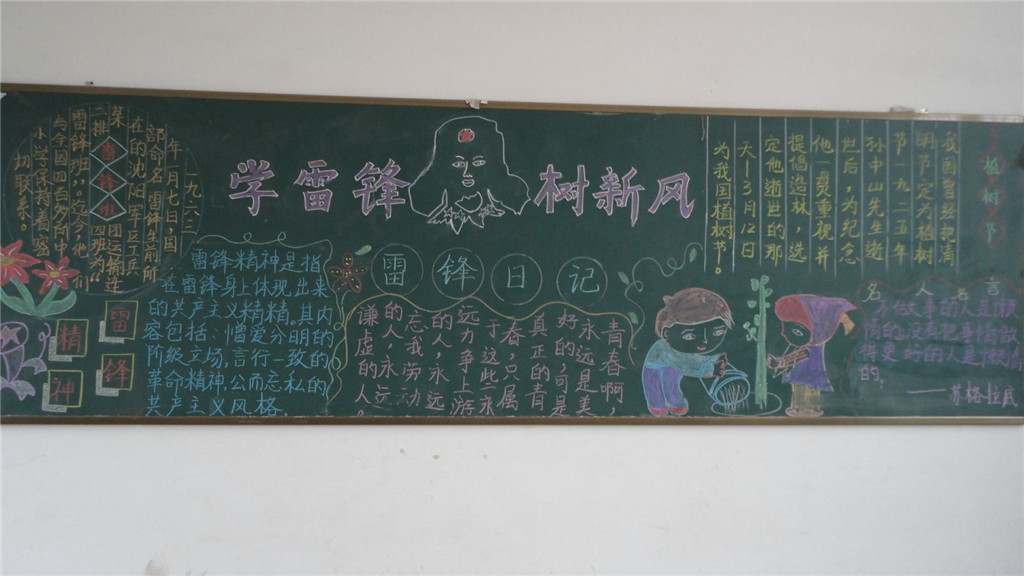 学雷锋
树新风
一九六三
年一月七日，国
部命名雷锋生前所
在的沈阳军区工兵
某
团运输连
二排
雷锋班
四班为“
雷锋班”。迄今，他们
与全国四百多所中
小学保持着密
切联系。
雷锋精神是指
在雷锋身上体现出来
的共产主义精精。其内
容包括：憎爱分明的
阶级立场，言行一致的
革命精神，公而忘私的
共产主义风格。
雷
锋
精
神
雷锋日记
青春啊，
永远是美
好的，可是
真正的青
春，只属
于这些永
远力争上游
的人，永远
忘我劳动
的人，永远
谦虚的人。
植树节
我国曾经把清
明节定为植树
节。一九二五年
孙中山先生逝
世后，为纪念
他一贯重视并
提倡造林，选
定他逝世的那
天—3月12日
为我国植树节。
名人名言
——苏格拉底